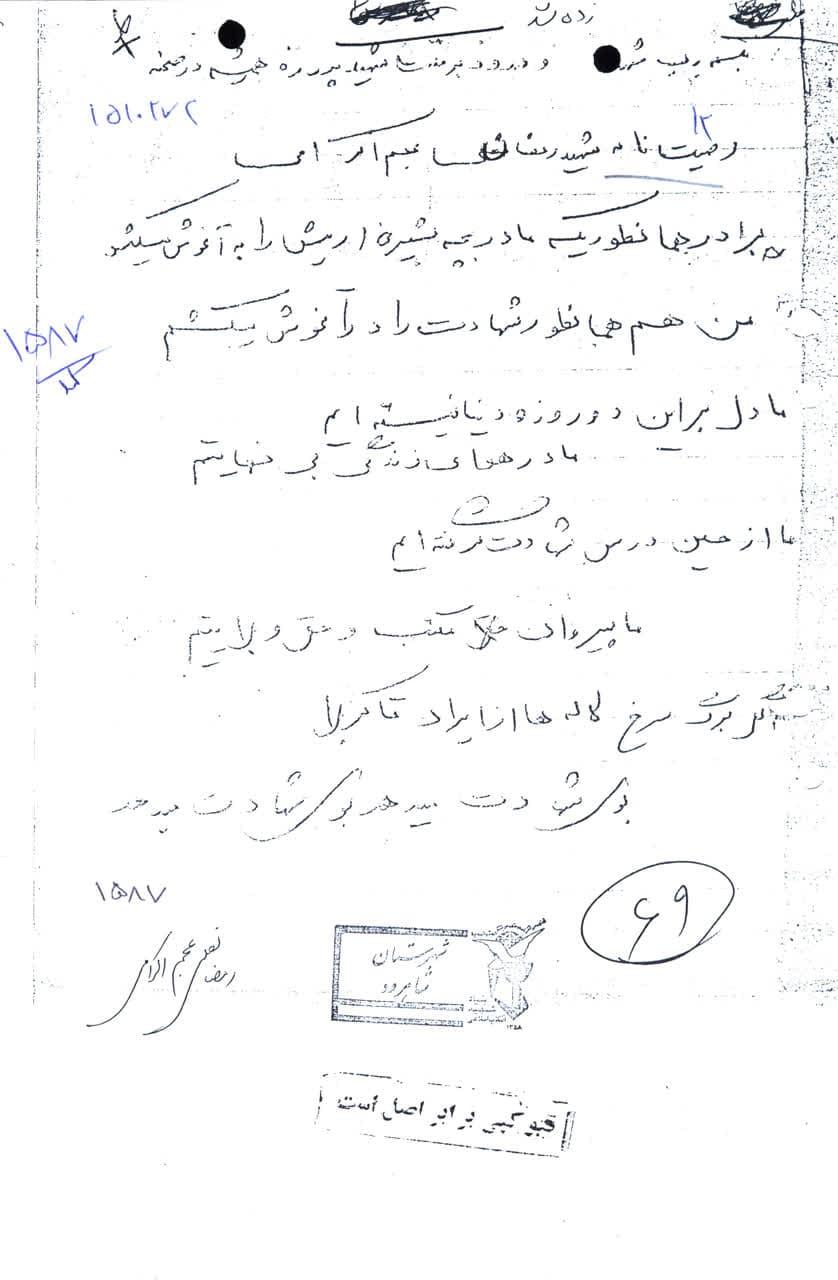 زده شد
بسمه رب شهدا و درود بر شهید همیشه در صحنه
۱۵۱۰۲۷۲
۱۲
وصیت نامه شهید رمضانعلی عجم اکرامی
برادر همانطوریکه مادر بچه شیری اریش را به آغوش میکشد
من هم همانطور شهادت را در آغوش میکشم
۱۵۸۷
ما دل بر این دو روزه دنیا نبسته ایم
ما در هوای زندگی بی نهایتیم
ما از حسین درس شهادت گرفته ایم
ما پیروان مکتب و حق و ولایتیم
گلبرگ سرخ لاله ها از ایران تا کربلا
بوی شهادت میدهد بوی شهادت میدهد
۶۹
۱۵۸۷
رمضانعلی عجم اکرامی
شهرستان
شاهرود
۱۳۵۸
فتوکپی برابر اصل است